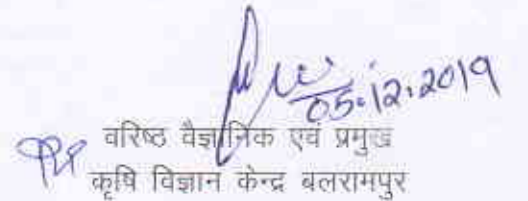 05.12.2019
वरिष्ठ वैज्ञानिक एवं प्रमुख
कृषि विज्ञान केन्द्र बलरामपुर